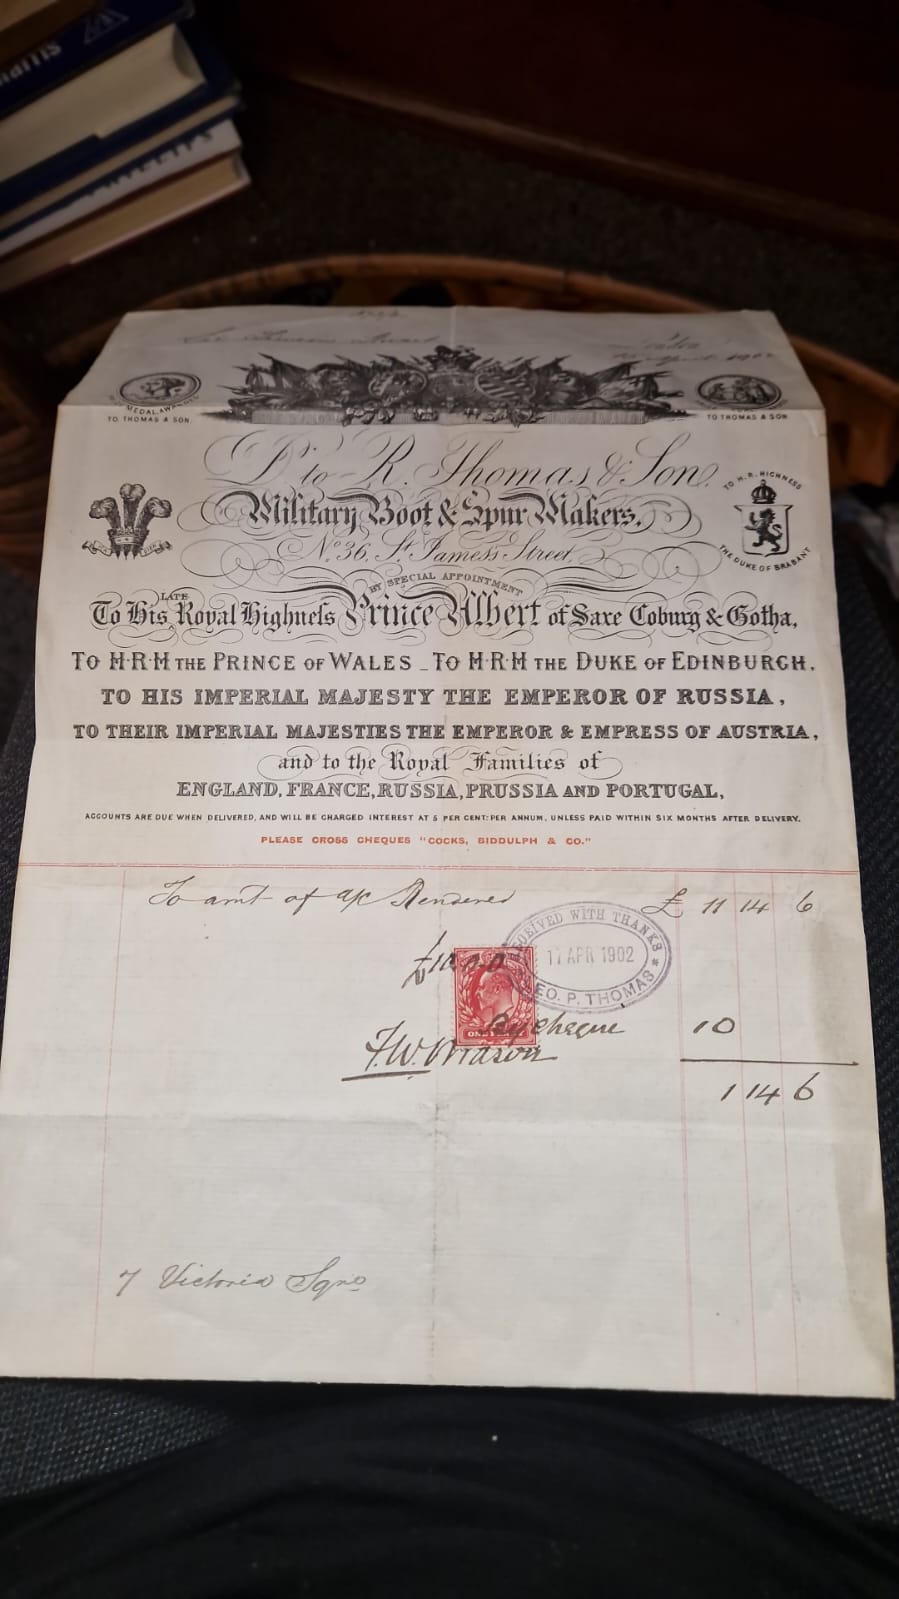 MEDAL AWARDED
TO THOMAS & SON.
TO THOMAS & SON
Dr. to R. Thomas & Son.
Military Boot & Spur Makers,
No. 36, St. James's Street,
TO H.R. HIGHNESS
THE DUKE OF BRABANT
BY SPECIAL APPOINTMENT
LATE
To His Royal Highness Prince Albert of Saxe Coburg & Gotha,
TO H·R·H THE PRINCE OF WALES _ TO H·R·H THE DUKE OF EDINBURGH,
TO HIS IMPERIAL MAJESTY THE EMPEROR OF RUSSIA,
TO THEIR IMPERIAL MAJESTIES THE EMPEROR & EMPRESS OF AUSTRIA,
and to the Royal Families of
ENGLAND, FRANCE, RUSSIA, PRUSSIA AND PORTUGAL,
ACCOUNTS ARE DUE WHEN DELIVERED, AND WILL BE CHARGED INTEREST AT 5 PER CENT: PER ANNUM, UNLESS PAID WITHIN SIX MONTHS AFTER DELIVERY.
PLEASE CROSS CHEQUES "COCKS, BIDDULPH & CO."
To amt of a/c Rendered £ 11 14 6
RECEIVED WITH THANKS
17 APR 1902
GEO. P. THOMAS
£10.0.0
By cheque 10
F.W. Mason
1 14 6
7 Victoria Sqre